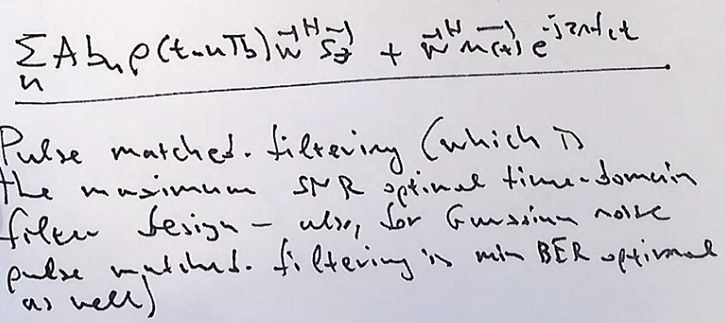 ∑ₙ A bₙ p(t-nTb) w⃗ᴴ s⃗ + w⃗ᴴ n⃗(t) e^{-j2πf_c t}
Pulse matched-filtering (which is
the maximum SNR optimal time-domain
filter design - also, for Gaussian noise
pulse matched-filtering is min BER optimal
as well)